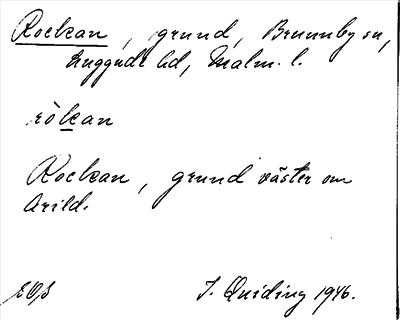 Rockan, grund, Brunnby sn,
Luggude hd, Malm. l.
ròkan
Rockan, grund väster om
Arild.
J. Quiding 1946.